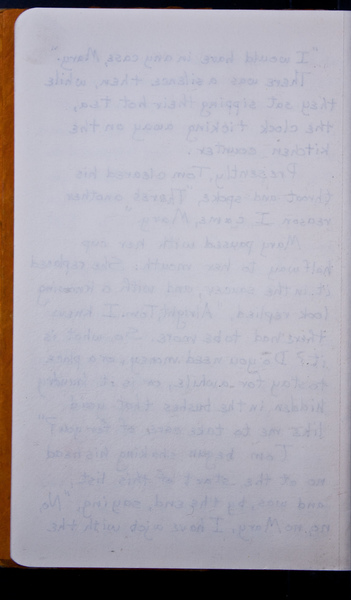 "I would have in any case, Mary."
There was a silence then, while
they sat sipping their hot tea,
the clock ticking away on the
kitchen counter.
Presently, Tom cleared his
throat and spoke, "There's another
reason I came, Mary."
Mary paused with her cup
halfway to her mouth. She replaced
it in the saucer, and with a knowing
look replied, "Alright, Tom. I knew
there had to be more. So what is
it? Do you need money, or a place
to stay for awhile, or is it
hidden in the bushes that you'd
like me to take care of for you?"
Tom began shaking his head
no at the start of this list,
and was, by the end, saying, "No
no, no Mary. I have a job with the